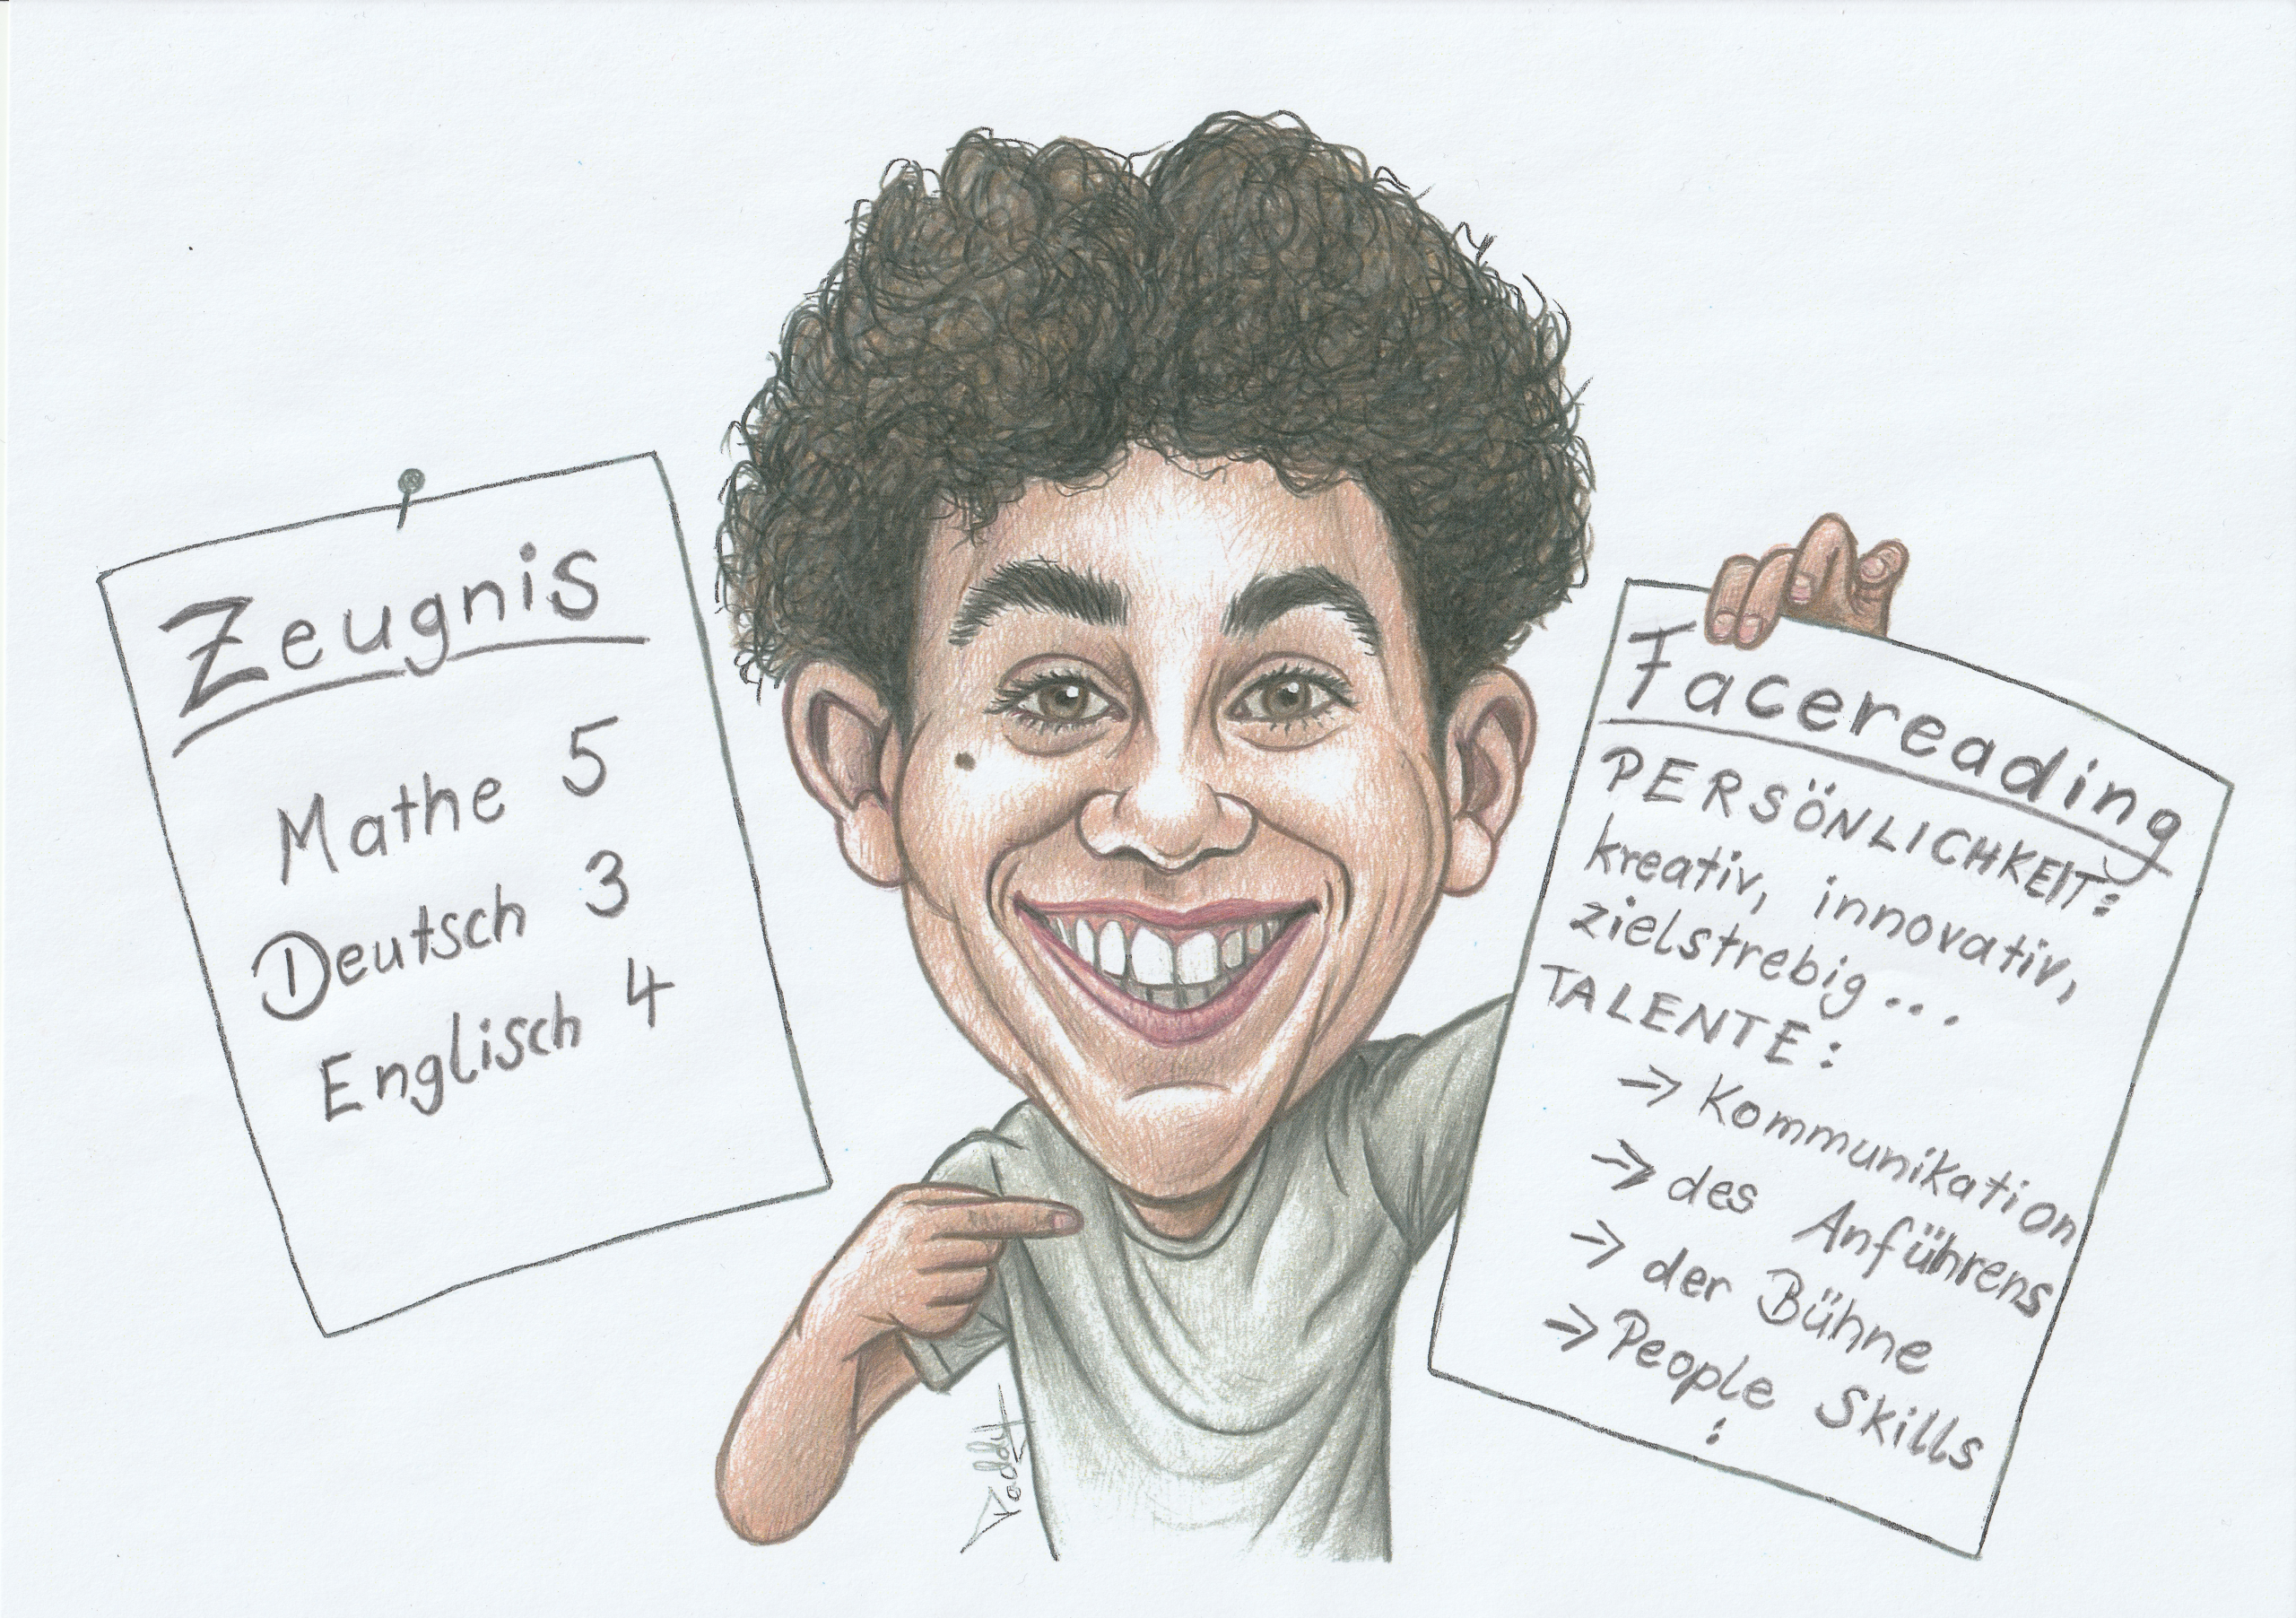 Zeugnis
Mathe 5
Deutsch 3
Englisch 4
Facereading
PERSÖNLICHKEIT:
kreativ, innovativ,
zielstrebig...
TALENTE:
-> Kommunikation
-> des Anführens
-> der Bühne
-> People Skills
: